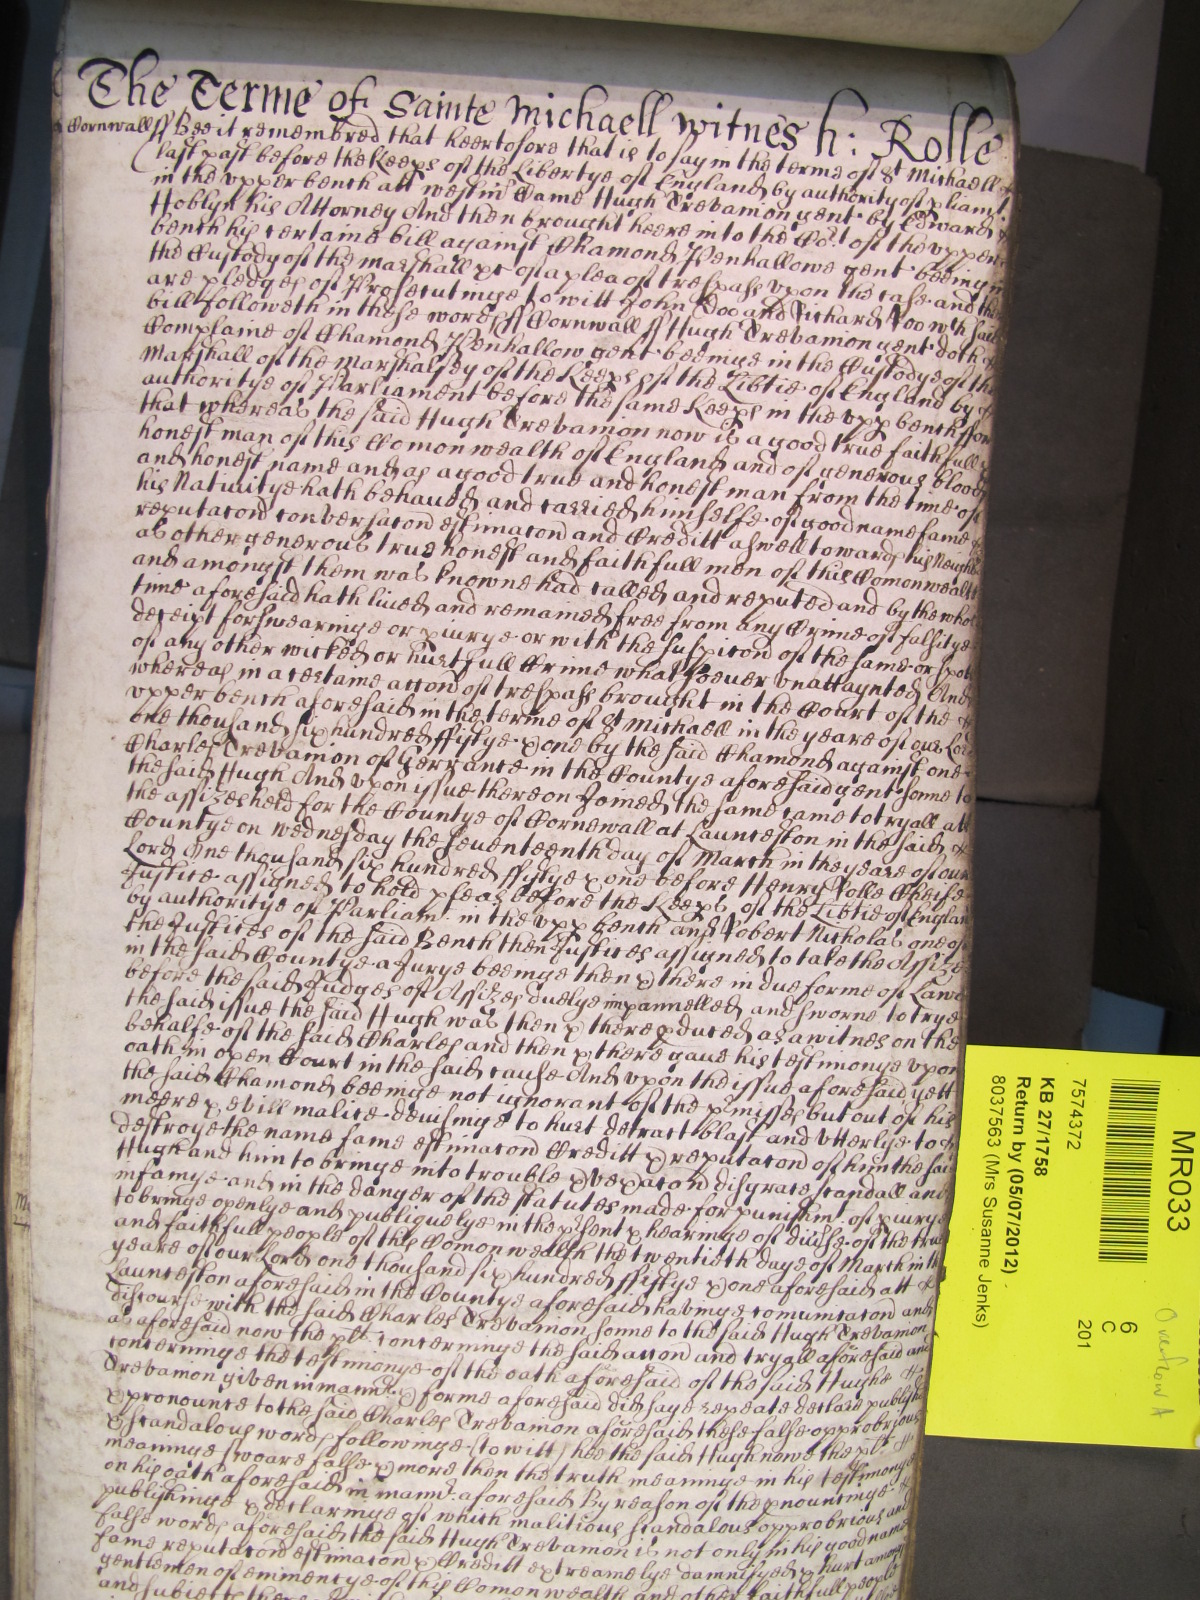 The Terme of Sainte Michaell witnes h: Rolle
Cornwall ss Bee it remembred that heertofore that is to say in the terme of St Michaell
last past before the Keeps of the Libertye of England by authority of pliamt
in the upper bench att westm Came Hugh Trevanion gent by Edward
Hoblyn his Attorney And then brought heere into the Cort of the upper
bench his certaine bill against Chamond Penhallowe gent beeing in
the Custody of the marshall &c of a plea of trespass upon the case and there
are pledges of Prosecutinge to witt John Doo and Richard Roo wch said
bill followeth in these words ss Cornwall ss Hugh Trevanion gent doth
Complaine of Chamond Penhallow gent beeinge in the Custodye of the
Marshall of the Marshalsey of the Keeps of the Libtie of England by
authoritye of Parliament before the same Keeps in the upp bench ffor
that whereas the said Hugh Trevanion now is a good true faithfull
honest man of this Comonwealth of England and of generous blood
and honest name and as a good true and honest man from the time of
his Nativitye hath behaued and carried himselfe of good name fame
reputacon conversacon estimacon and Creditt aswell towards his Neigh
as other generous true honest and faithfull men of this Comonwealth
and amongst them was knowne had called and reputed and by the whole
time aforesaid hath lived and remained free from any Crime of falsitye
deceipt forswearinge or piurye or with the suspicon of the same or spott
of any other wicked or hurtfull Crime whatsoever unattaynted And
whereas in a certaine accon of trespass brought in the Court of the
upper bench aforesaid in the terme of St Michaell in the yeare of our Lord
one thousand six hundred ffiftye & one by the said Chamond against one
Charles Trevanion of Gerrance in the Countye aforesaid gent sonne to
the said Hugh And upon issue thereon Joined the same came to tryall att
the assizes held for the Countye of Cornewall at Launceston in the said
Countye on wednesday the seventeenth day of March in the yeare of our
Lord One thousand six hundred ffiftye & one before Henry Rolle Cheife
Justice assigned to hold pleas before the Keeps of the Libtie of England
by authoritye of Parliamt in the upp bench and Robert Nicholas one of
the Justices of the said Bench then Justices assigned to take the Assizes
in the said Countye a Jurye beeinge then & there in due forme of Lawe
before the said Judges of Assizes duelye impannelled and sworne to trye
the said issue the said Hugh was then & there pduced as a witnes on the
behalfe of the said Charles and then & there gaue his testimonye upon
oath in open Court in the said cause And upon the issue aforesaid yett
the said Chamond beeinge not ignorant of the pmisses but out of his
meere & evill malice devisinge to hurt detract blast and utterlye to
destroye the name fame estimacon Creditt & reputacon of him the said
Hugh and him to bringe into trouble & vexacon disgrace scandall and
infamye and in the danger of the statutes made for punishmt of piurye
to bringe openlye and publiquelye in the psent & hearinge of diuse of the true
and faithfull people of this Comonwealth the twentieth daye of March in the
yeare of our Lord one thousand six hundred ffiftye & one aforesaid att
Launceston aforesaid in the Countye aforesaid havinge comunicacon and
discourse with the said Charles Trevanion sonne to the said Hugh Trevanion
as aforesaid now the plt concerninge the said accon and tryall aforesaid and
concerninge the testimonye of the oath aforesaid of the said Hughe
Trevanion given in manner & forme aforesaid did saye repeate declare publishe
& pronounce to the said Charles Trevanion aforesaid these false opprobrious
& scandalous words followinge (to witt) hee the said Hugh nowe the plt
meaninge swoare false & more then the truth meaninge in his testimonye
on his oath aforesaid in mannr aforesaid By reason of the pnouncinge
publishinge & declaringe of which malitious scandalous opprobrious and
false words aforesaid the said Hugh Trevanion is not only in his good name
fame reputacon estimacon & Creditt extreamelye damnifyed & hurt among
gentlemen of eminencye of this Comonwealth and other faithfull people
and subiects
MR033
6
C
201
7574372
KB 27/1758
Return by (05/07/2012)
8037563 (Mrs Susanne Jenks)
Overflow A